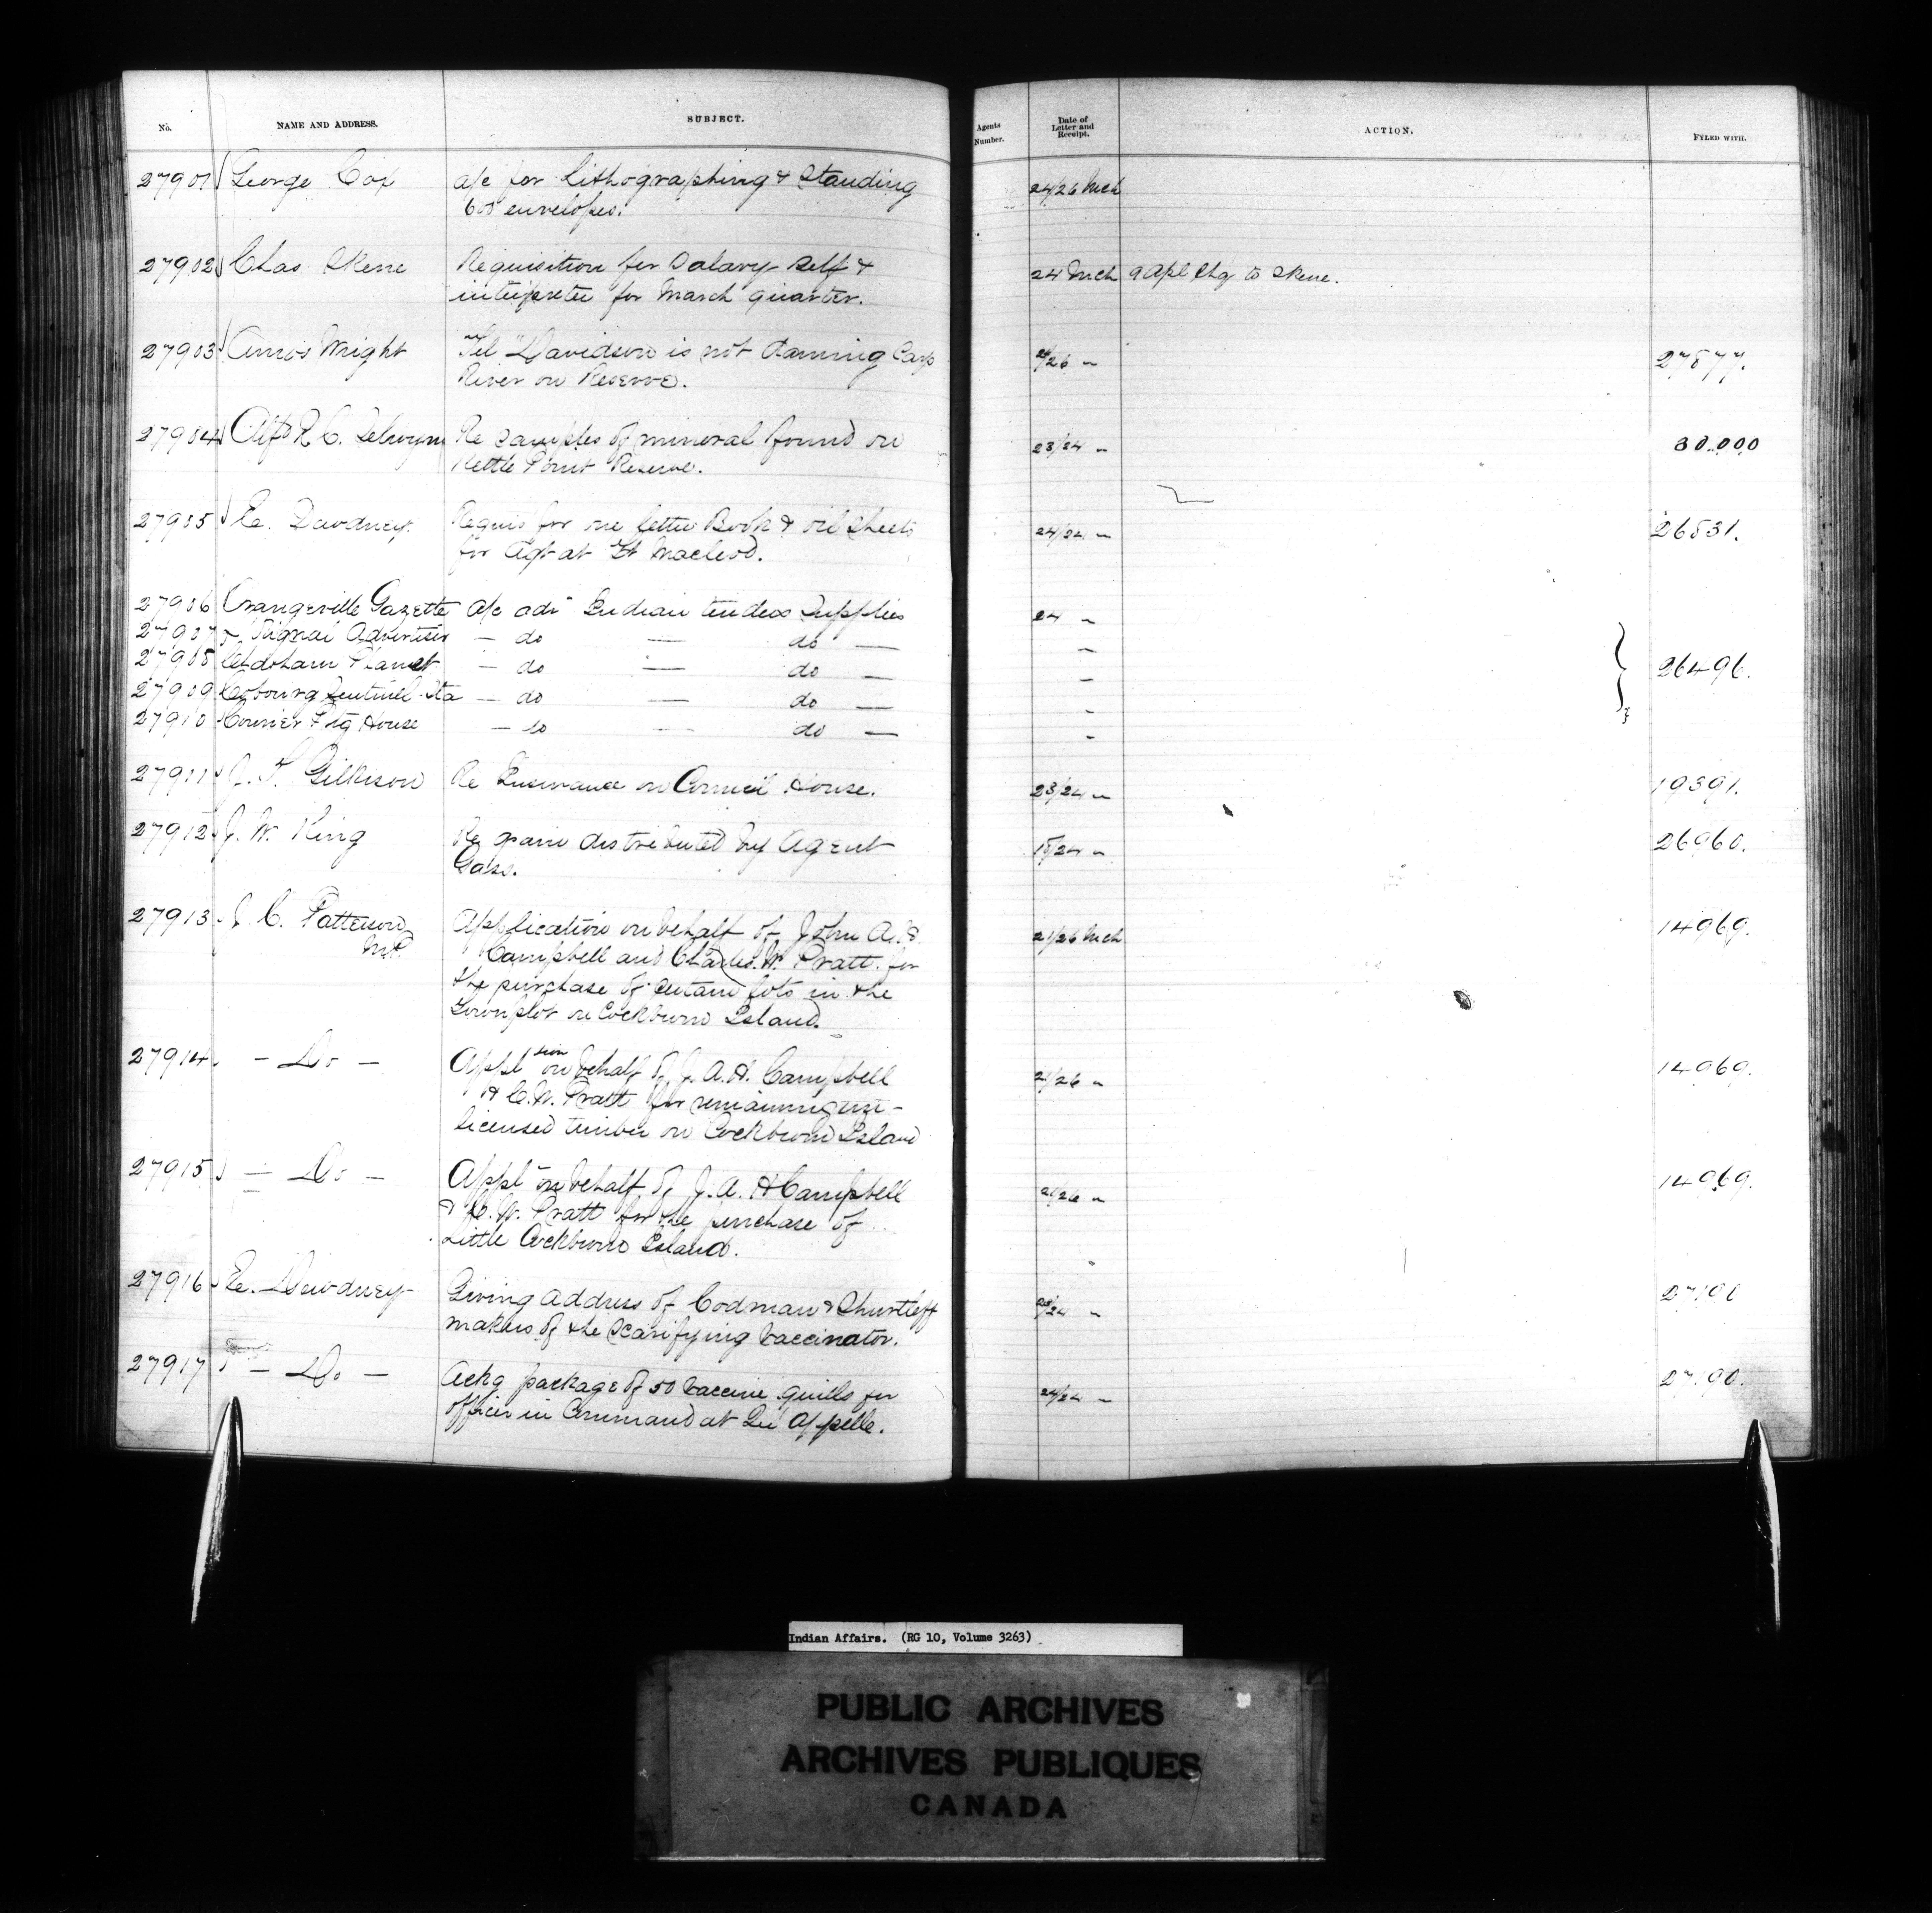 No. NAME AND ADDRESS. SUBJECT. Agents Number. Date of Letter and Receipt. ACTION. FYLED WITH.
27901 George Cox a/c for lithographing & Standing 24/26 Mch
600 envelopes.
27902 Chas Skene Requisition for Salary Self & 24 Mch 9 Apl Chq to Skene.
interpreter for March quarter.
27903 Amos Wright Tel "Davidson is not damming Carp /26 " 27877.
River on Reserve.
27904 Alfd R. C. Selwyn Re samples of mineral found on 23/24 " 30.000
Kettle Point Reserve.
27905 E. Dewdney Requis for one letter Book & oil sheets 24/24 " 26531.
for Agt at Ft Macleod.
27906 Orangeville Gazette a/c adv Indian tenders Supplies 24 "
27907 Signal Advertiser — do — do — "
27908 Chatham Planet — do — do — " 26496.
27909 Cobourg Sentinel Sta — do — do — "
27910 Courier Ptg House — do — do — "
27911 J. T. Gilkison Re Insurance on Council House. 23/24 " 19391.
27912 J. W. King Re grain distributed by Agent 15/24 " 26960.
Gass.
27913 J. C. Patterson Application on behalf of John A. H 21/26 Mch 14969.
M.P. Campbell and Charles W. Pratt for
the purchase of certain lots in the
Townplot on Cockburn Island.
27914 — Do — Appltion on behalf of J. A. H. Campbell 21/26 " 14969.
& C. W. Pratt for remaining un-
licensed timber on Cockburn Island
27915 — Do — Appln on behalf of J. A. H Campbell 21/26 " 14969.
& C. W. Pratt for the purchase of
Little Cockburn Island.
27916 E. Dewdney Giving address of Codman & Shurtleff /24 " 27190
makers of the scarifying vaccinator.
27917 — Do — Ackg package of 50 vaccine quills for 24/24 " 27190.
officer in Command at Qu Appelle.
Indian Affairs. (RG 10, Volume 3263)
PUBLIC ARCHIVES
ARCHIVES PUBLIQUES
CANADA